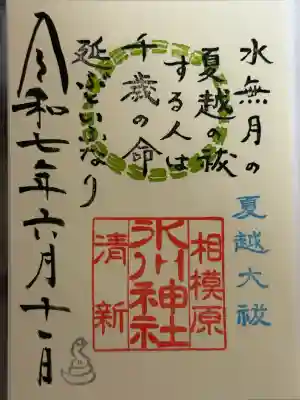 水無月の
夏越の祓
する人は
千歳の命
延ぶといふなり
夏越大祓
相模原
氷川神社
清新
令和七年六月十一日